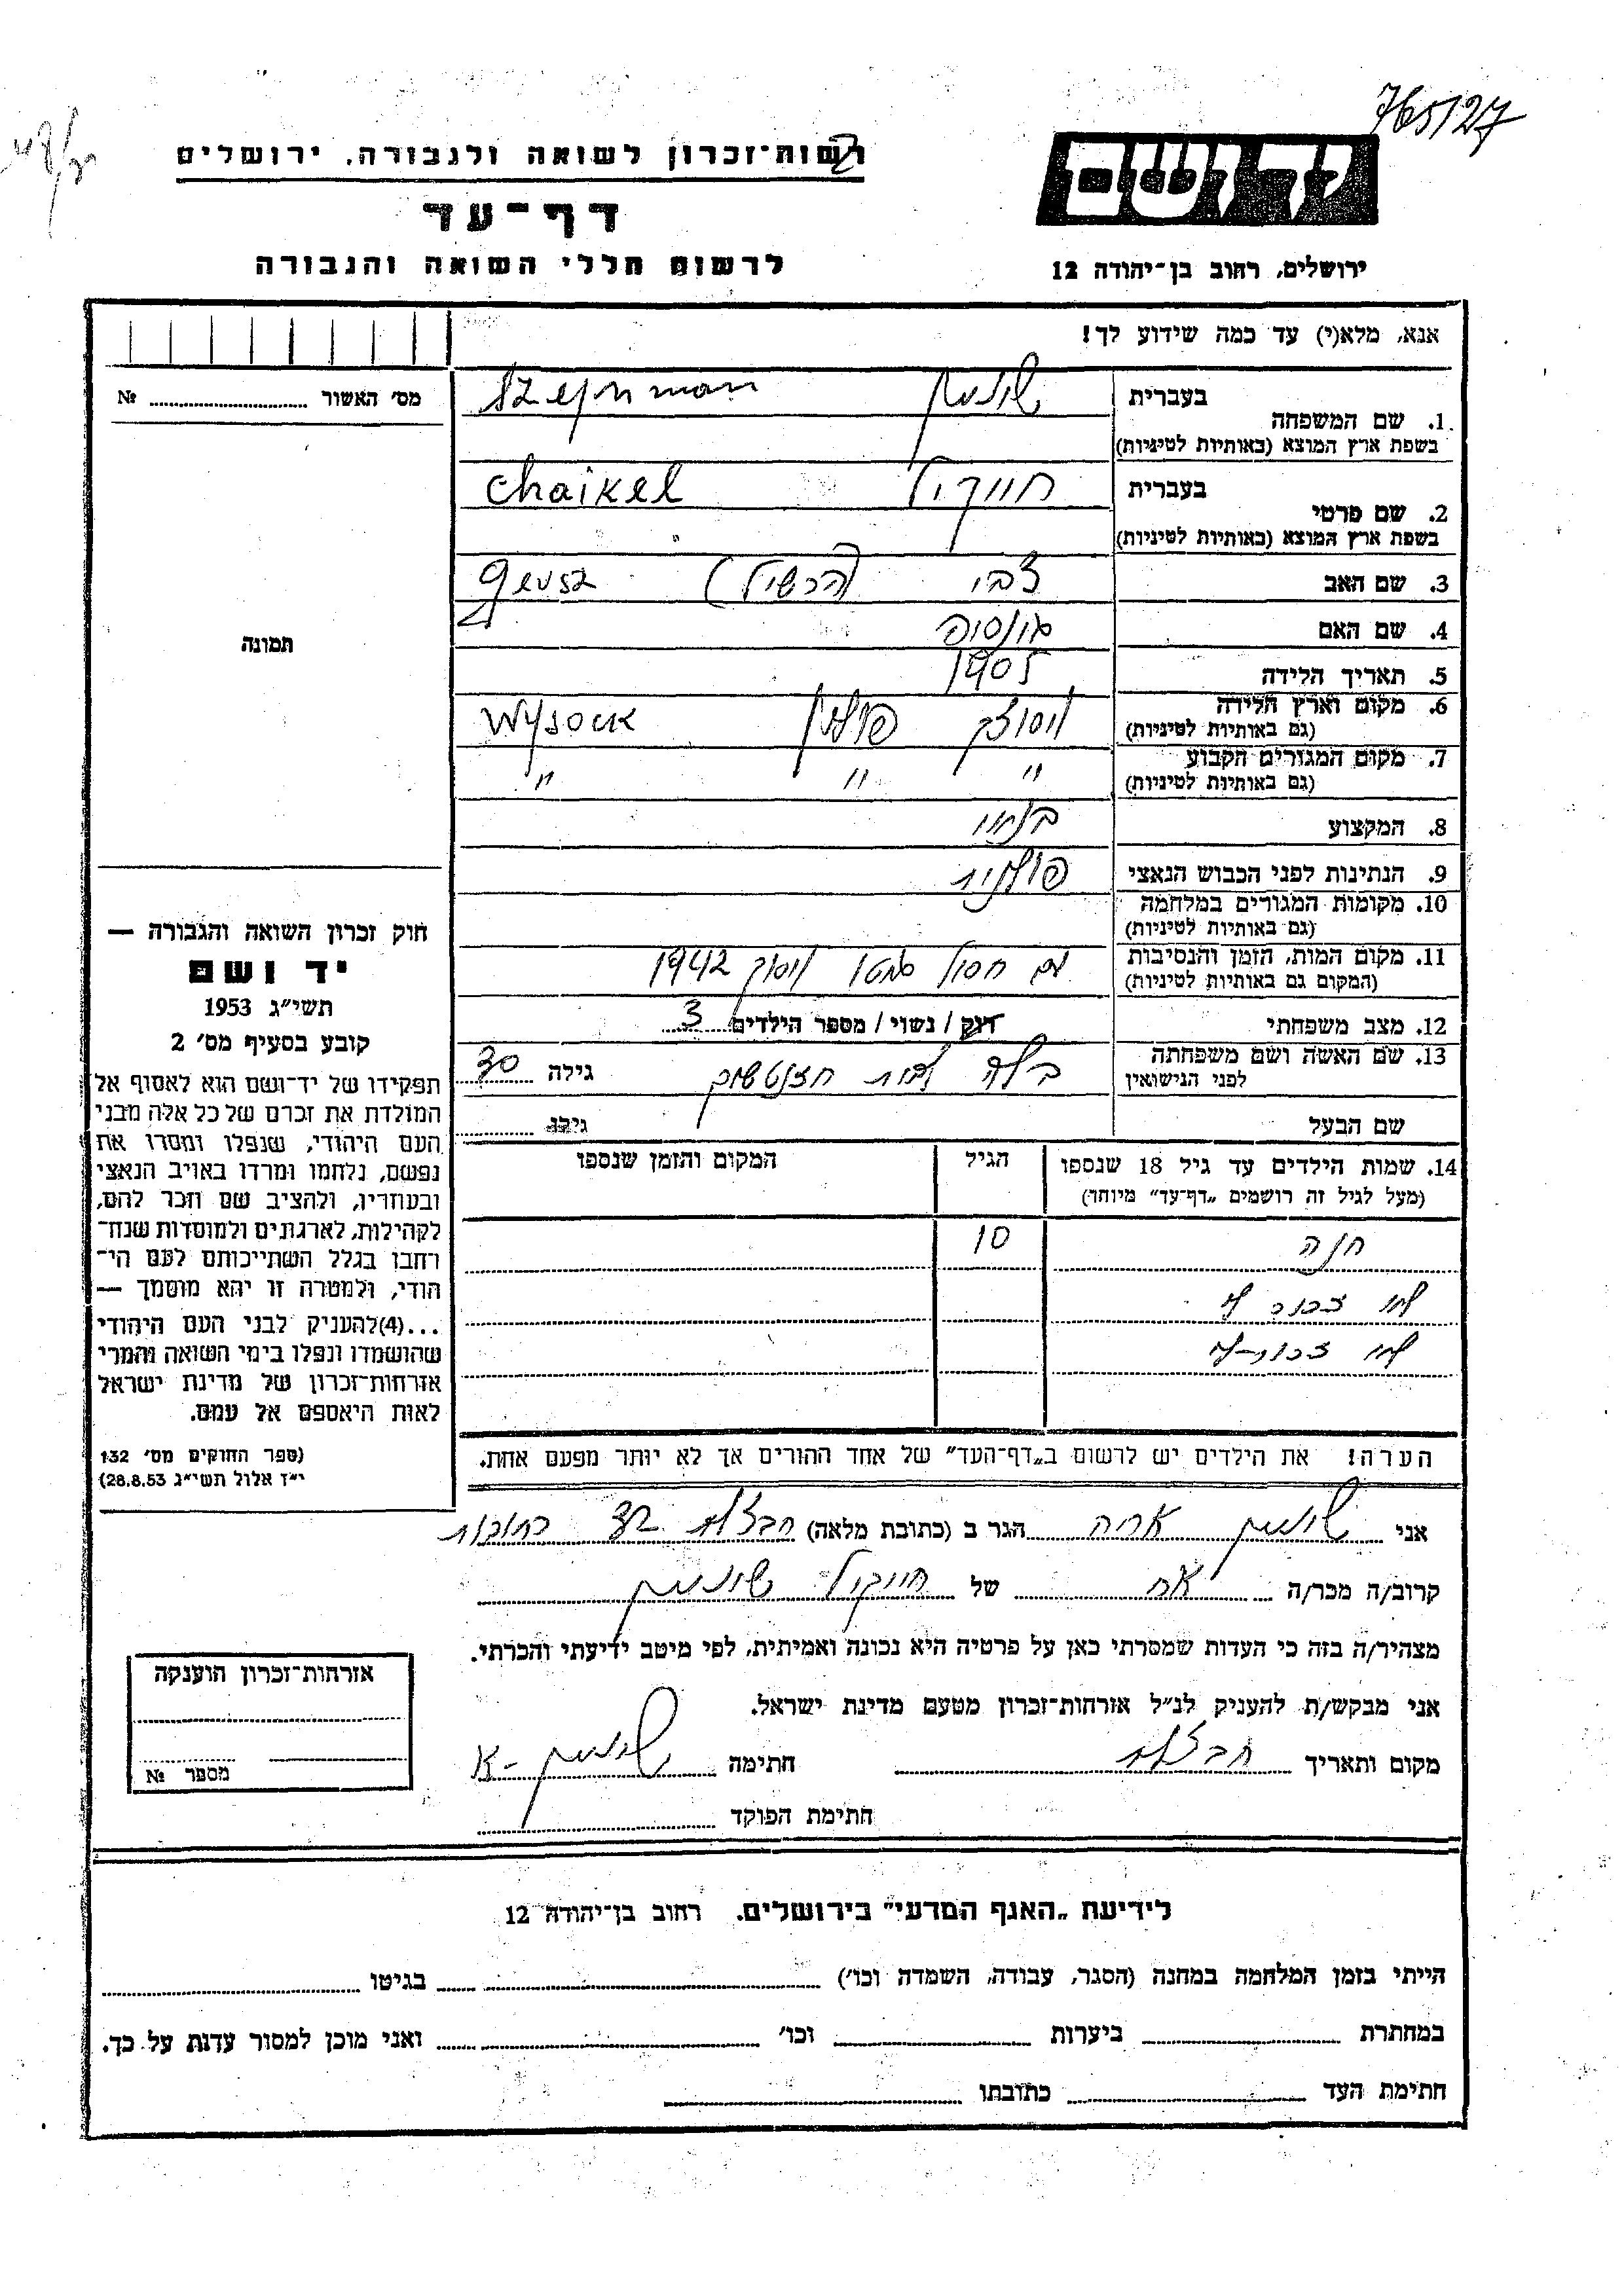 765127
רשות־זכרון לשואה ולגבורה, ירושלים
דף־עד
לרשום חללי השואה והגבורה
יד ושם
ירושלים, רחוב בן־יהודה 12
אנא, מלא(י) עד כמה שידוע לך!
מס׳ האשור № 
תמונה
חוק זכרון השואה והגבורה —
יד ושם
תשי״ג 1953
קובע בסעיף מס׳ 2
תפקידו של יד־ושם הוא לאסוף אל
המולדת את זכרם של כל אלה מבני
העם היהודי, שנפלו ומסרו את
נפשם, נלחמו ומרדו באויב הנאצי
ובעוזריו, ולהציב שם וזכר להם,
לקהילות, לארגונים ולמוסדות שנח־
רבו בגלל השתייכותם לעם הי־
הודי, ולמטרה זו יהא מוסמך —
...(4)להעניק לבני העם היהודי
שהושמדו ונפלו בימי השואה והמרי
אזרחות־זכרון של מדינת ישראל
לאות היאספם אל עמם.
(ספר החוקים מס׳ 132
י״ז אלול תשי״ג 28.8.53)
בעברית שינמן Szejnman
1. שם המשפחה
בשפת ארץ המוצא (באותיות לטיניות)
בעברית חייקיל Chaikel
2. שם פרטי
בשפת ארץ המוצא (באותיות לטיניות)
3. שם האב צבי (הרשיל)
4. שם האם
5. תאריך הלידה 1905
6. מקום וארץ הלידה ויסוצק פולין Wysock
(גם באותיות לטיניות)
7. מקום המגורים הקבוע
(גם באותיות לטיניות) " " "
8. המקצוע
9. הנתינות לפני הכבוש הנאצי פולנית
10. מקומות המגורים במלחמה
(גם באותיות לטיניות)
11. מקום המות, הזמן והנסיבות עם חסול גטו 1942
(המקום גם באותיות לטיניות)
12. מצב משפחתי רווק / נשוי / מספר הילדים 3
13. שם האשה ושם משפחתה גילה 30
לפני הנישואין
שם הבעל גילו
14. שמות הילדים עד גיל 18 שנספו הגיל המקום והזמן שנספו
(מעל לגיל זה רושמים „דף־עד” מיוחד)
חנה 10
לא
לא
הערה! את הילדים יש לרשום ב„דף־העד” של אחד ההורים אך לא יותר מפעם אחת.
אני שינמן אריה הגר ב (כתובת מלאה) חבצלת
קרוב/ה מכר/ה אח של חייקיל שינמן
מצהיר/ה בזה כי העדות שמסרתי כאן על פרטיה היא נכונה ואמיתית, לפי מיטב ידיעתי והכרתי.
אני מבקש/ת להעניק לנ״ל אזרחות־זכרון מטעם מדינת ישראל.
מקום ותאריך חבצלת חתימה שינמן א
חתימת הפוקד
אזרחות־זכרון הוענקה
מספר №
לידיעת „האגף המדעי” בירושלים, רחוב בן־יהודה 12
הייתי בזמן המלחמה במחנה (הסגר, עבודה, השמדה וכו׳) בגיטו
במחתרת ביערות וכו׳ ואני מוכן למסור עדות על כך.
חתימת העד כתובתו